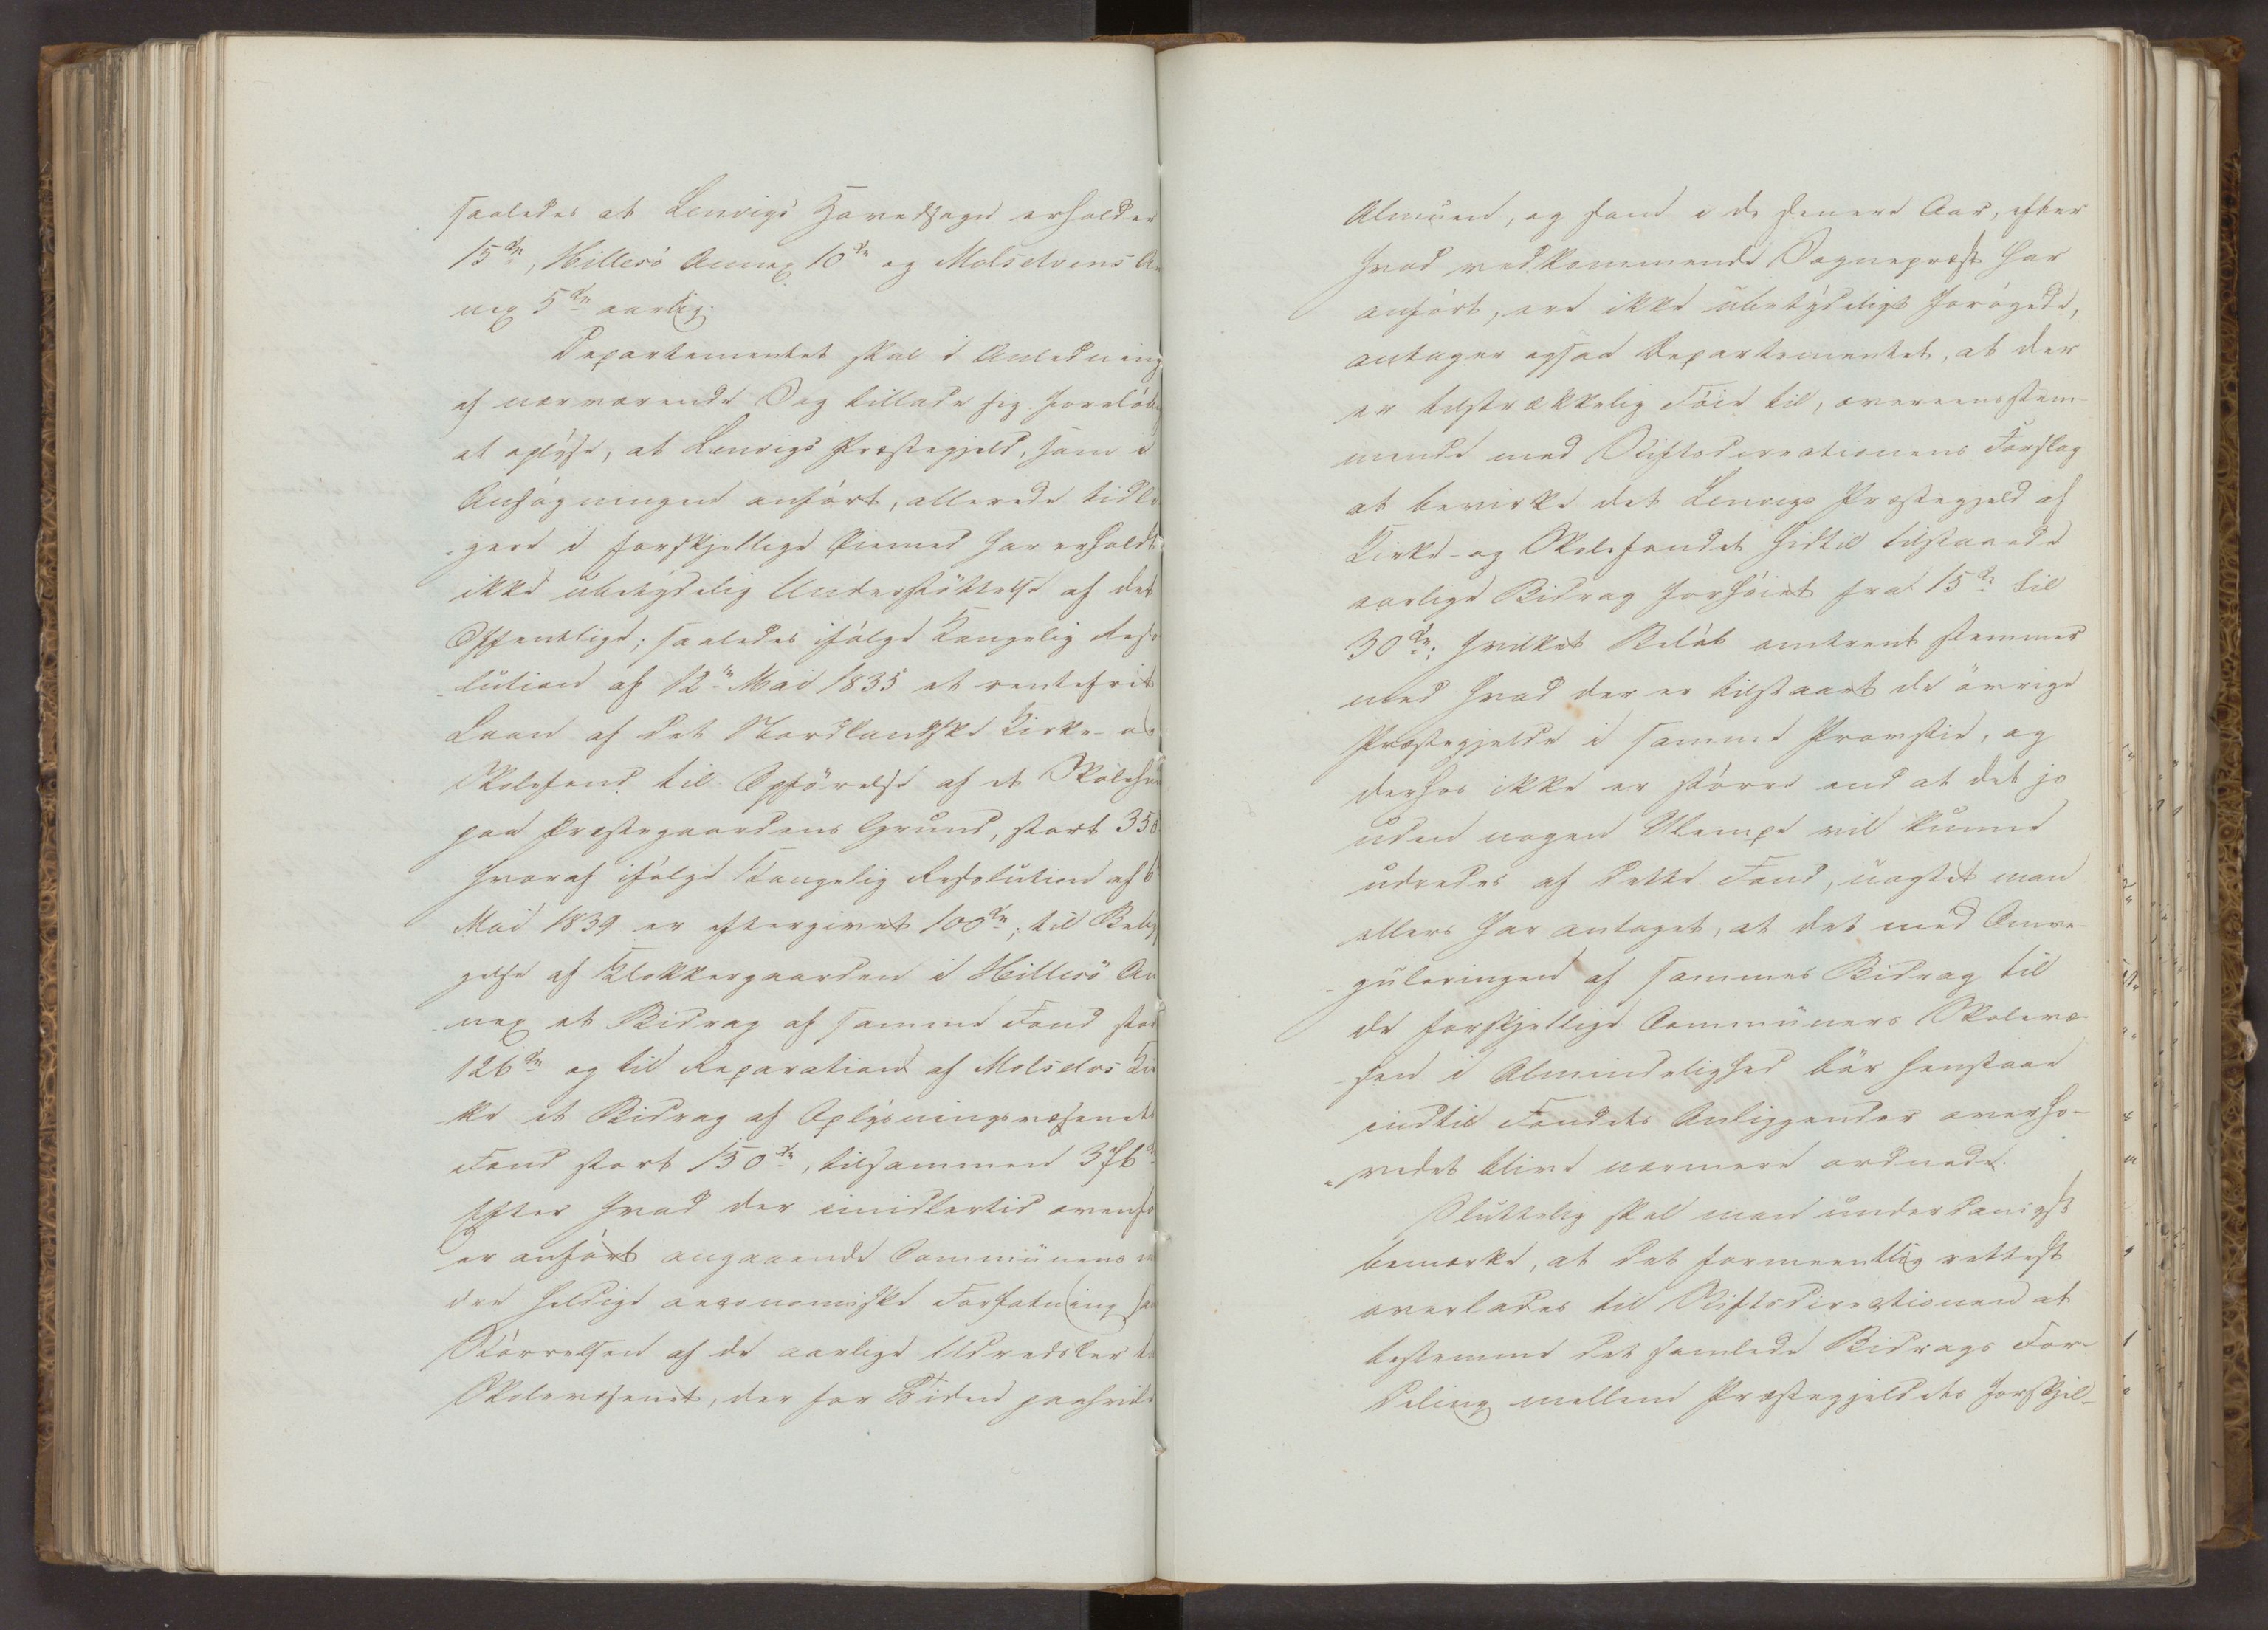 saaledes at Lenvigs Hovedsogn erholder
15 Spd, Hillesö Annex 10 Spd og Molselvens An
nex 5 Spd aarlig.
Departementet skal i Anledning
af nærværende Sag tillade sig foreløbi
at oplyse, at Lenvigs Præstegjeld, som i
Ansøgningen anført, allerede tidli
-gere i forskjellige Øiemed har erholdt
ikke ubetydelig Understøttelse af det
Offentlige; saaledes ifølge Kongelig Reso
-lution af 12te Mai 1835 et rentefrit
Laan af det Nordlandske Kirke- og
Skolefond til Opførelse af et Skolehuu
paa Præstegaardens Grund, stort 350
hvoraf ifølge Kongelig Resolution af 6
Mai 1839 er eftergivet 100 Spd; til Beby
gelse af Klokkergaarden i Hillesö An
nex et Bidrag af samme Fond stor
126 Spd og til Reparation af Molselvs Kir
ke et Bidrag af Oplysningsvæsenets
Fond stort 150 Spd, tilsammen 376
Efter hvad der imidlertid ovenfo
er anført angaaende Communens m
dre heldige oeconomiske Forfatning sa
Størrelsen af de aarlige Udredsler til
Skolevæsenet, der for Tiden paahvile
Almuen, og som i de senere Aar, efter
hvad vedkommende Sognepræst har
anført, ere ikke ubetydeligt forøgede,
antager ogsaa Departementet, at der
er tilstrækkelig Föie til, overeensstem-
mende med Stiftsdirectionens Forslag
at bevirke det Lenvigs Præstegjeld af
Kirke- og Skolefondet hidtil tilstaaede
aarlige Bidrag forhøiet fra 15 Spd til
30 Spd; hvilket Beløb omtrent stemmer
med hvad der er tilstaaet de øvrige
Præstegjelde i samme Provstie, og
derhos ikke er større end at det jo
uden nogen Ulempe vil kunne
udredes af dette Fond, uagtet man
ellers har antaget, at det med Omre-
-guleringen af sammes Bidrag til
de forskjellige Communers Skolevæ-
-sen i Almindelighed bör henstaae
indtil Fondets Anliggender overho-
-vedet blive nærmere ordnede.
Sluttelig skal man underdanigst
bemærke, at det formeentlig rettest
overlades til Stiftsdirectionen at
bestemme det samlede Bidrags For-
deling mellem Præstegjeldets forskjel-